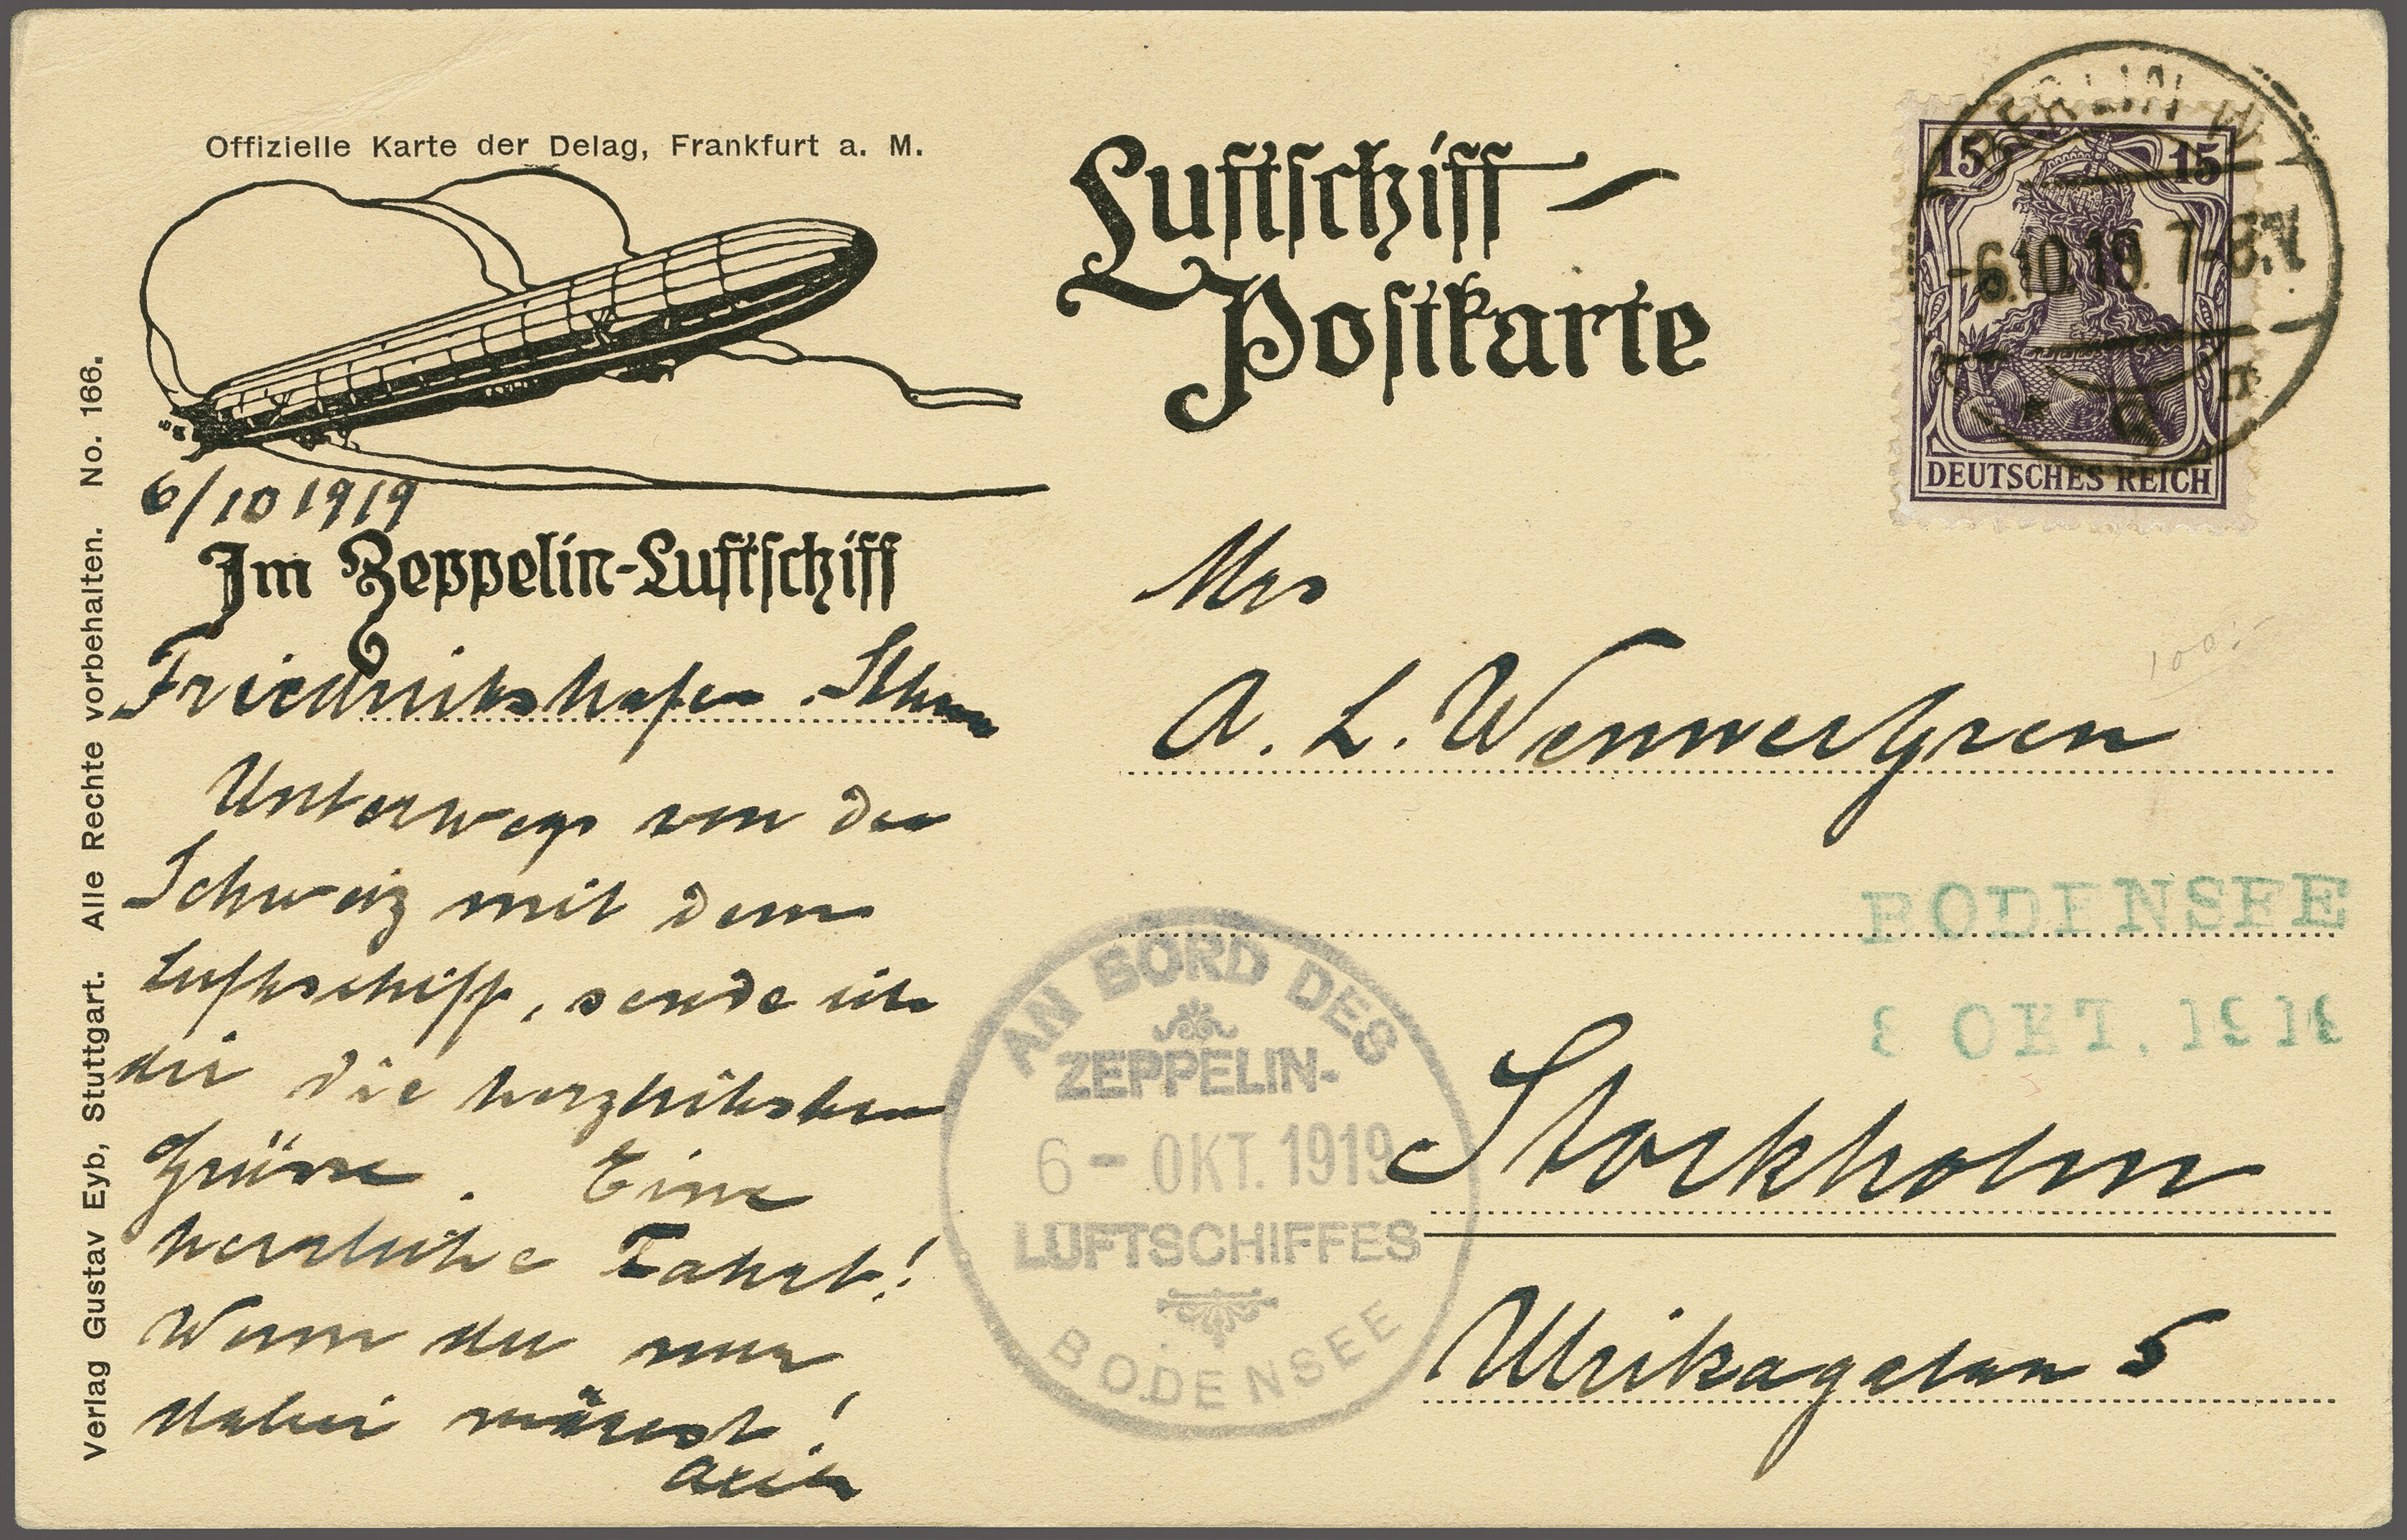 Offizielle Karte der Delag, Frankfurt a. M.
Luftschiff-
Postkarte
BERLIN W
-6.10.19. 7-8.V.
* 9 n
15 15
DEUTSCHES REICH
6/10 1919
Im Zeppelin-Luftschiff
Friedrichshafen
Unterwegs von der
Schweiz mit dem
Luftschiff, sende ich
dir die herzlichsten
Grüsse. Eine
herrliche Fahrt!
Wenn du nur
dabei wärest!
Axel
Mrs
A. L. WennerGren
Stockholm
Ulrikagatan 5
100:-
BODENSEE
OKT. 191
AN BORD DES
ZEPPELIN-
6- OKT. 1919
LUFTSCHIFFES
BODENSEE
Verlag Gustav Eyb, Stuttgart. Alle Rechte vorbehalten. No. 166.